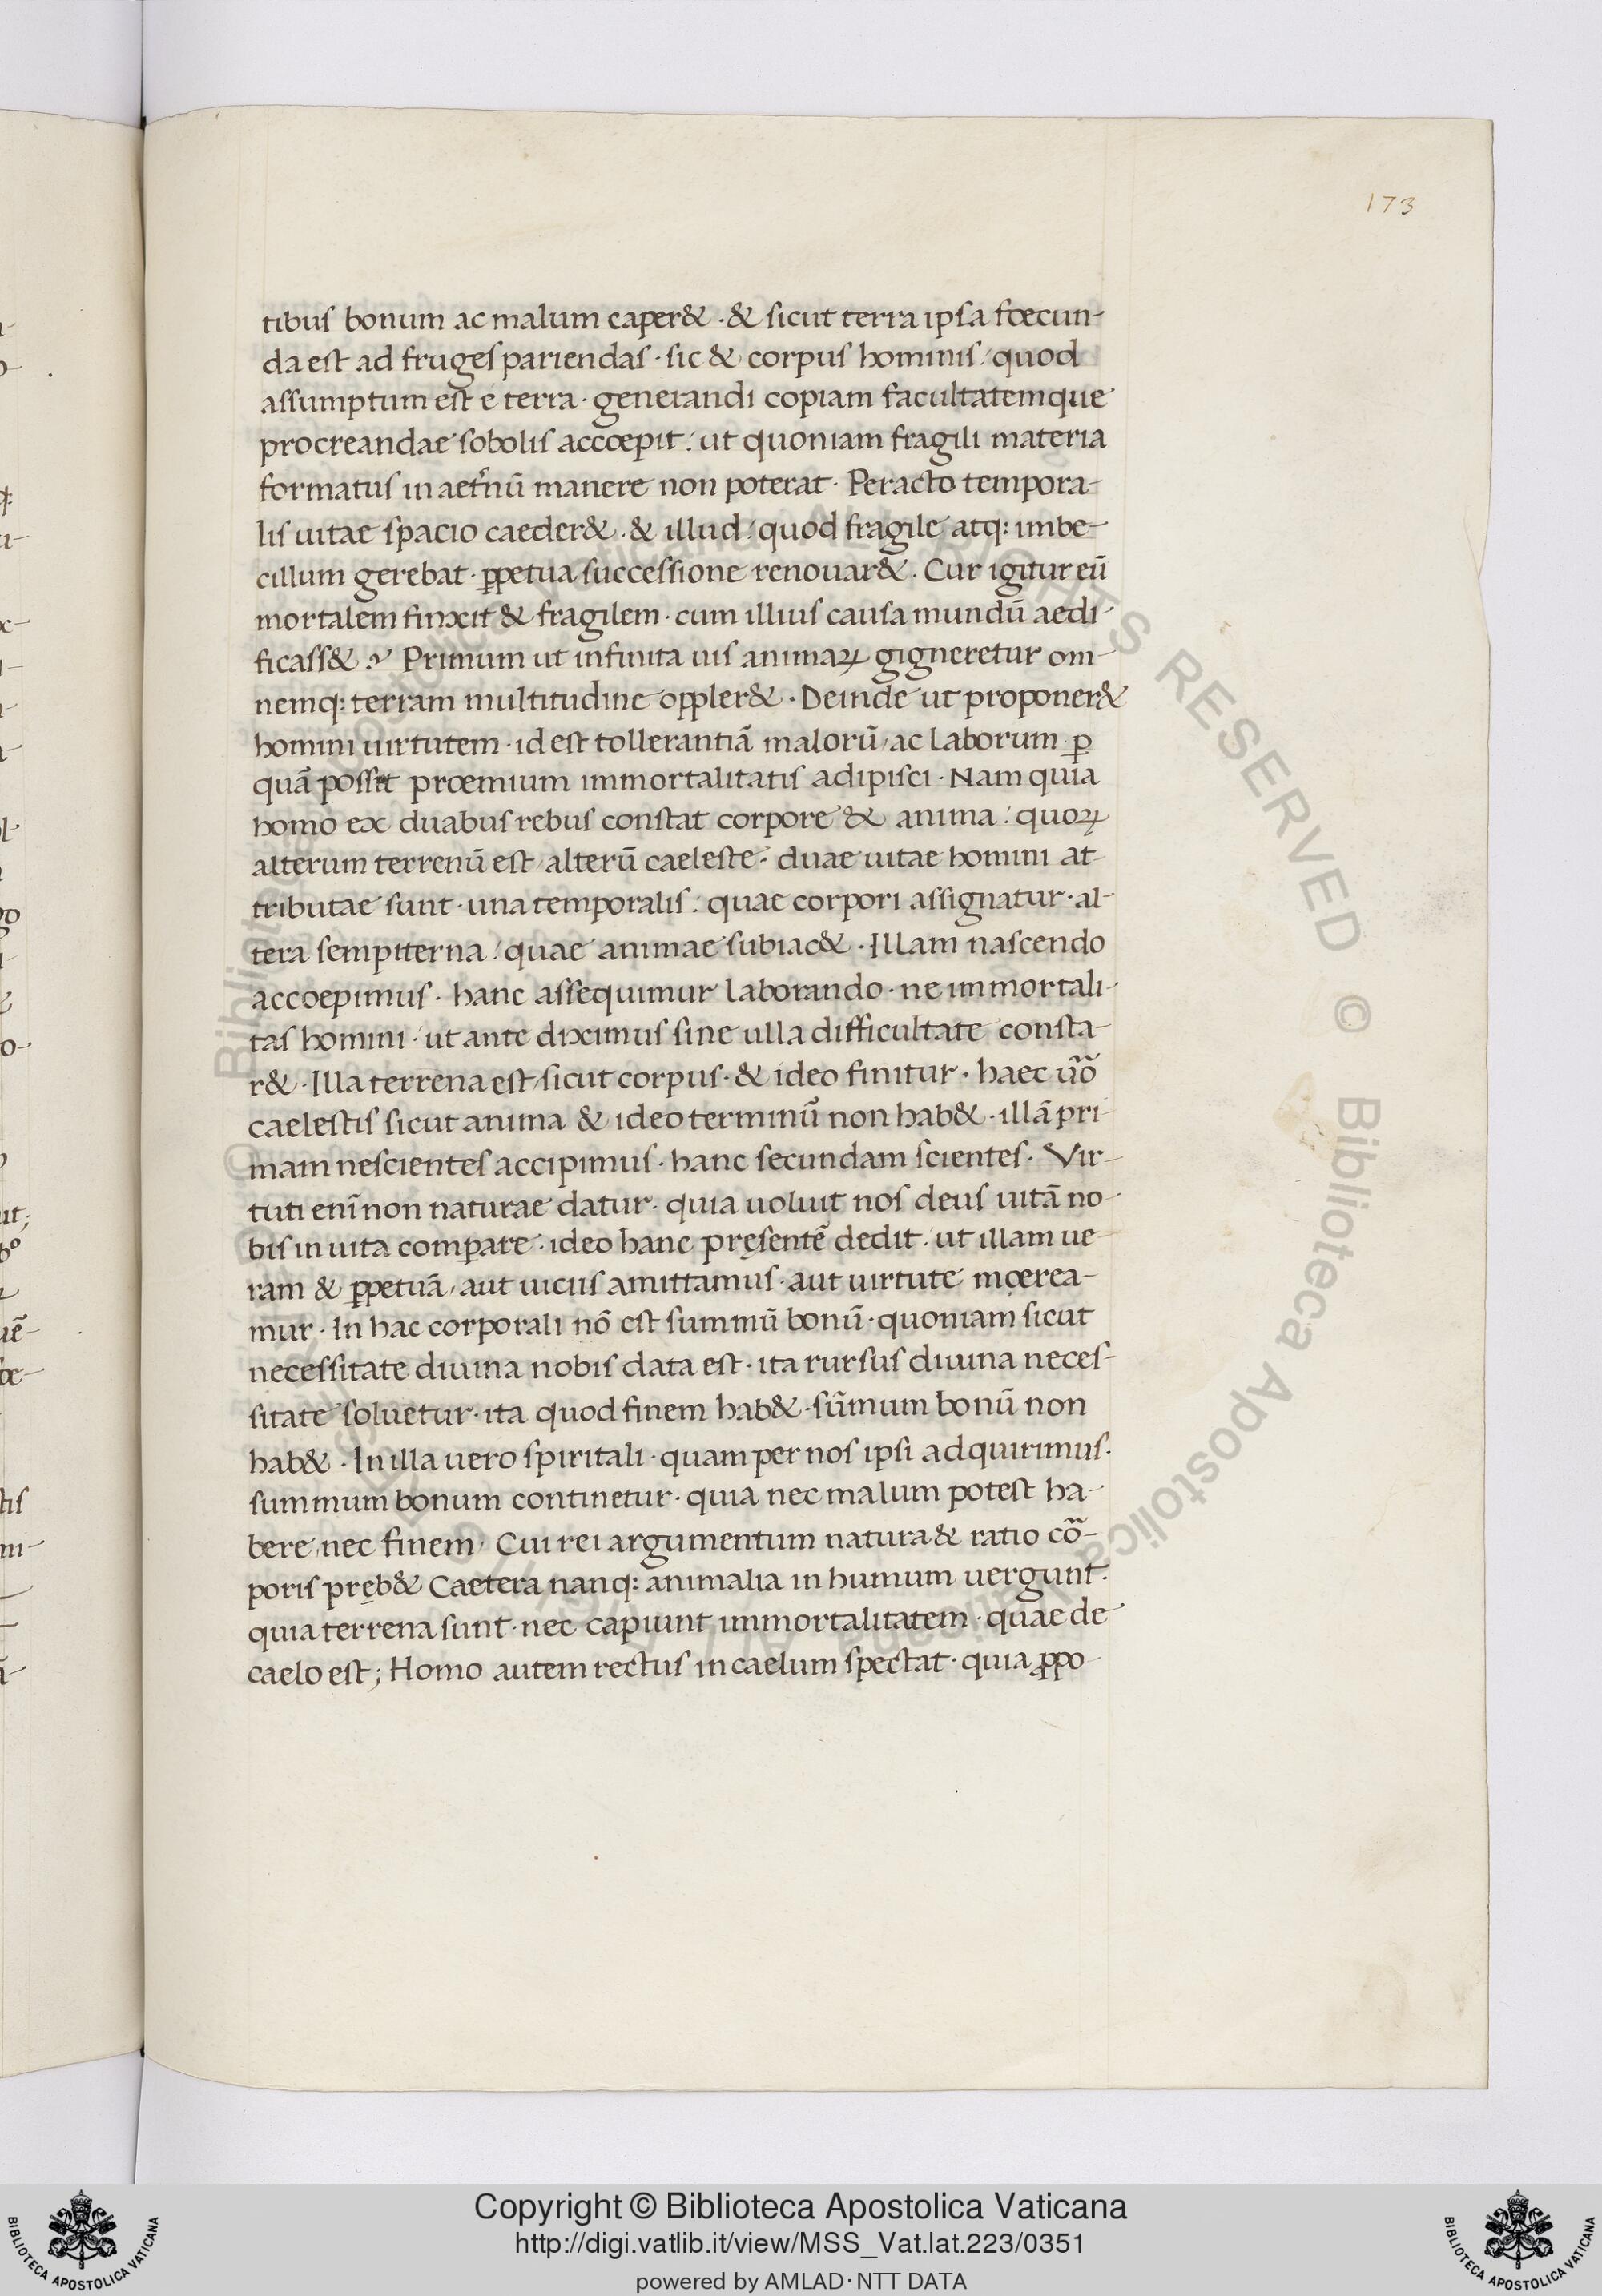 173
tibus bonum ac malum caper& · & sicut terra ipsa foecun-
da est ad fruges pariendas · sic & corpus hominis / quod
assumptum est e terra · generandi copiam facultatemque
procreandae sobolis accoepit : ut quoniam fragili materia
formatus in aet̃nū manere non poterat · Peracto tempora-
lis uitae spacio caeder& · & illud / quod fragile atq: imbe-
cillum gerebat · ꝑpetua successione renouar& . Cur igitur eū
mortalem finxit & fragilem · cum illius causa mundū aedi-
ficass& ? Primum ut infinita uis animaꝝ gigneretur om-
nemq: terram multitudine oppler& · Deinde ut proponer&
homini uirtutem · id est tollerantiā malorū / ac laborum ꝑ
quā posset proemium immortalitatis adipisci · Nam quia
homo ex duabus rebus constat corpore & anima : quoꝝ
alterum terrenū est / alterū caeleste · duae uitae homini at-
tributae sunt · una temporalis : quae corpori assignatur · al-
tera sempiterna : quae animae subiac& · Illam nascendo
accoepimus · hanc assequimur laborando · ne immortali-
tas homini · ut ante diximus sine ulla difficultate consta-
r& · Illa terrena est / sicut corpus · & ideo finitur · haec ũo
caelestis sicut anima & ideo terminū non hab& · illā pri-
mam nescientes accipimus · hanc secundam scientes · Vir-
tuti enī non naturae datur · quia uoluit nos deus uitā no-
bis in uita comꝑare · ideo hanc pręsentē dedit · ut illam ue
ram & ꝑpetuā / aut uiciis amittamus · aut uirtute mœrea-
mur · In hac corporali nō est summū bonū · quoniam sicut
necessitate diuina nobis data est · ita rursus diuina neces-
sitate soluetur · ita quod finem hab& · sūmum bonū non
hab& · In illa uero spiritali · quam per nos ipsi adquirimus ·
summum bonum continetur · quia nec malum potest ha-
bere / nec finem / Cui rei argumentum natura & ratio cõ-
poris pręb& Caetera nanq: animalia in humum uergunt ·
quia terrena sunt · nec capiunt immortalitatem · quae de
caelo est ; Homo autem rectus in caelum spectat · quia ꝓpo-
© Biblioteca Apostolica Vaticana ALL RIGHTS RESERVED
Copyright © Biblioteca Apostolica Vaticana
http://digi.vatlib.it/view/MSS_Vat.lat.223/0351
powered by AMLAD·NTT DATA
BIBLIOTECA APOSTOLICA VATICANA
BIBLIOTECA APOSTOLICA VATICANA